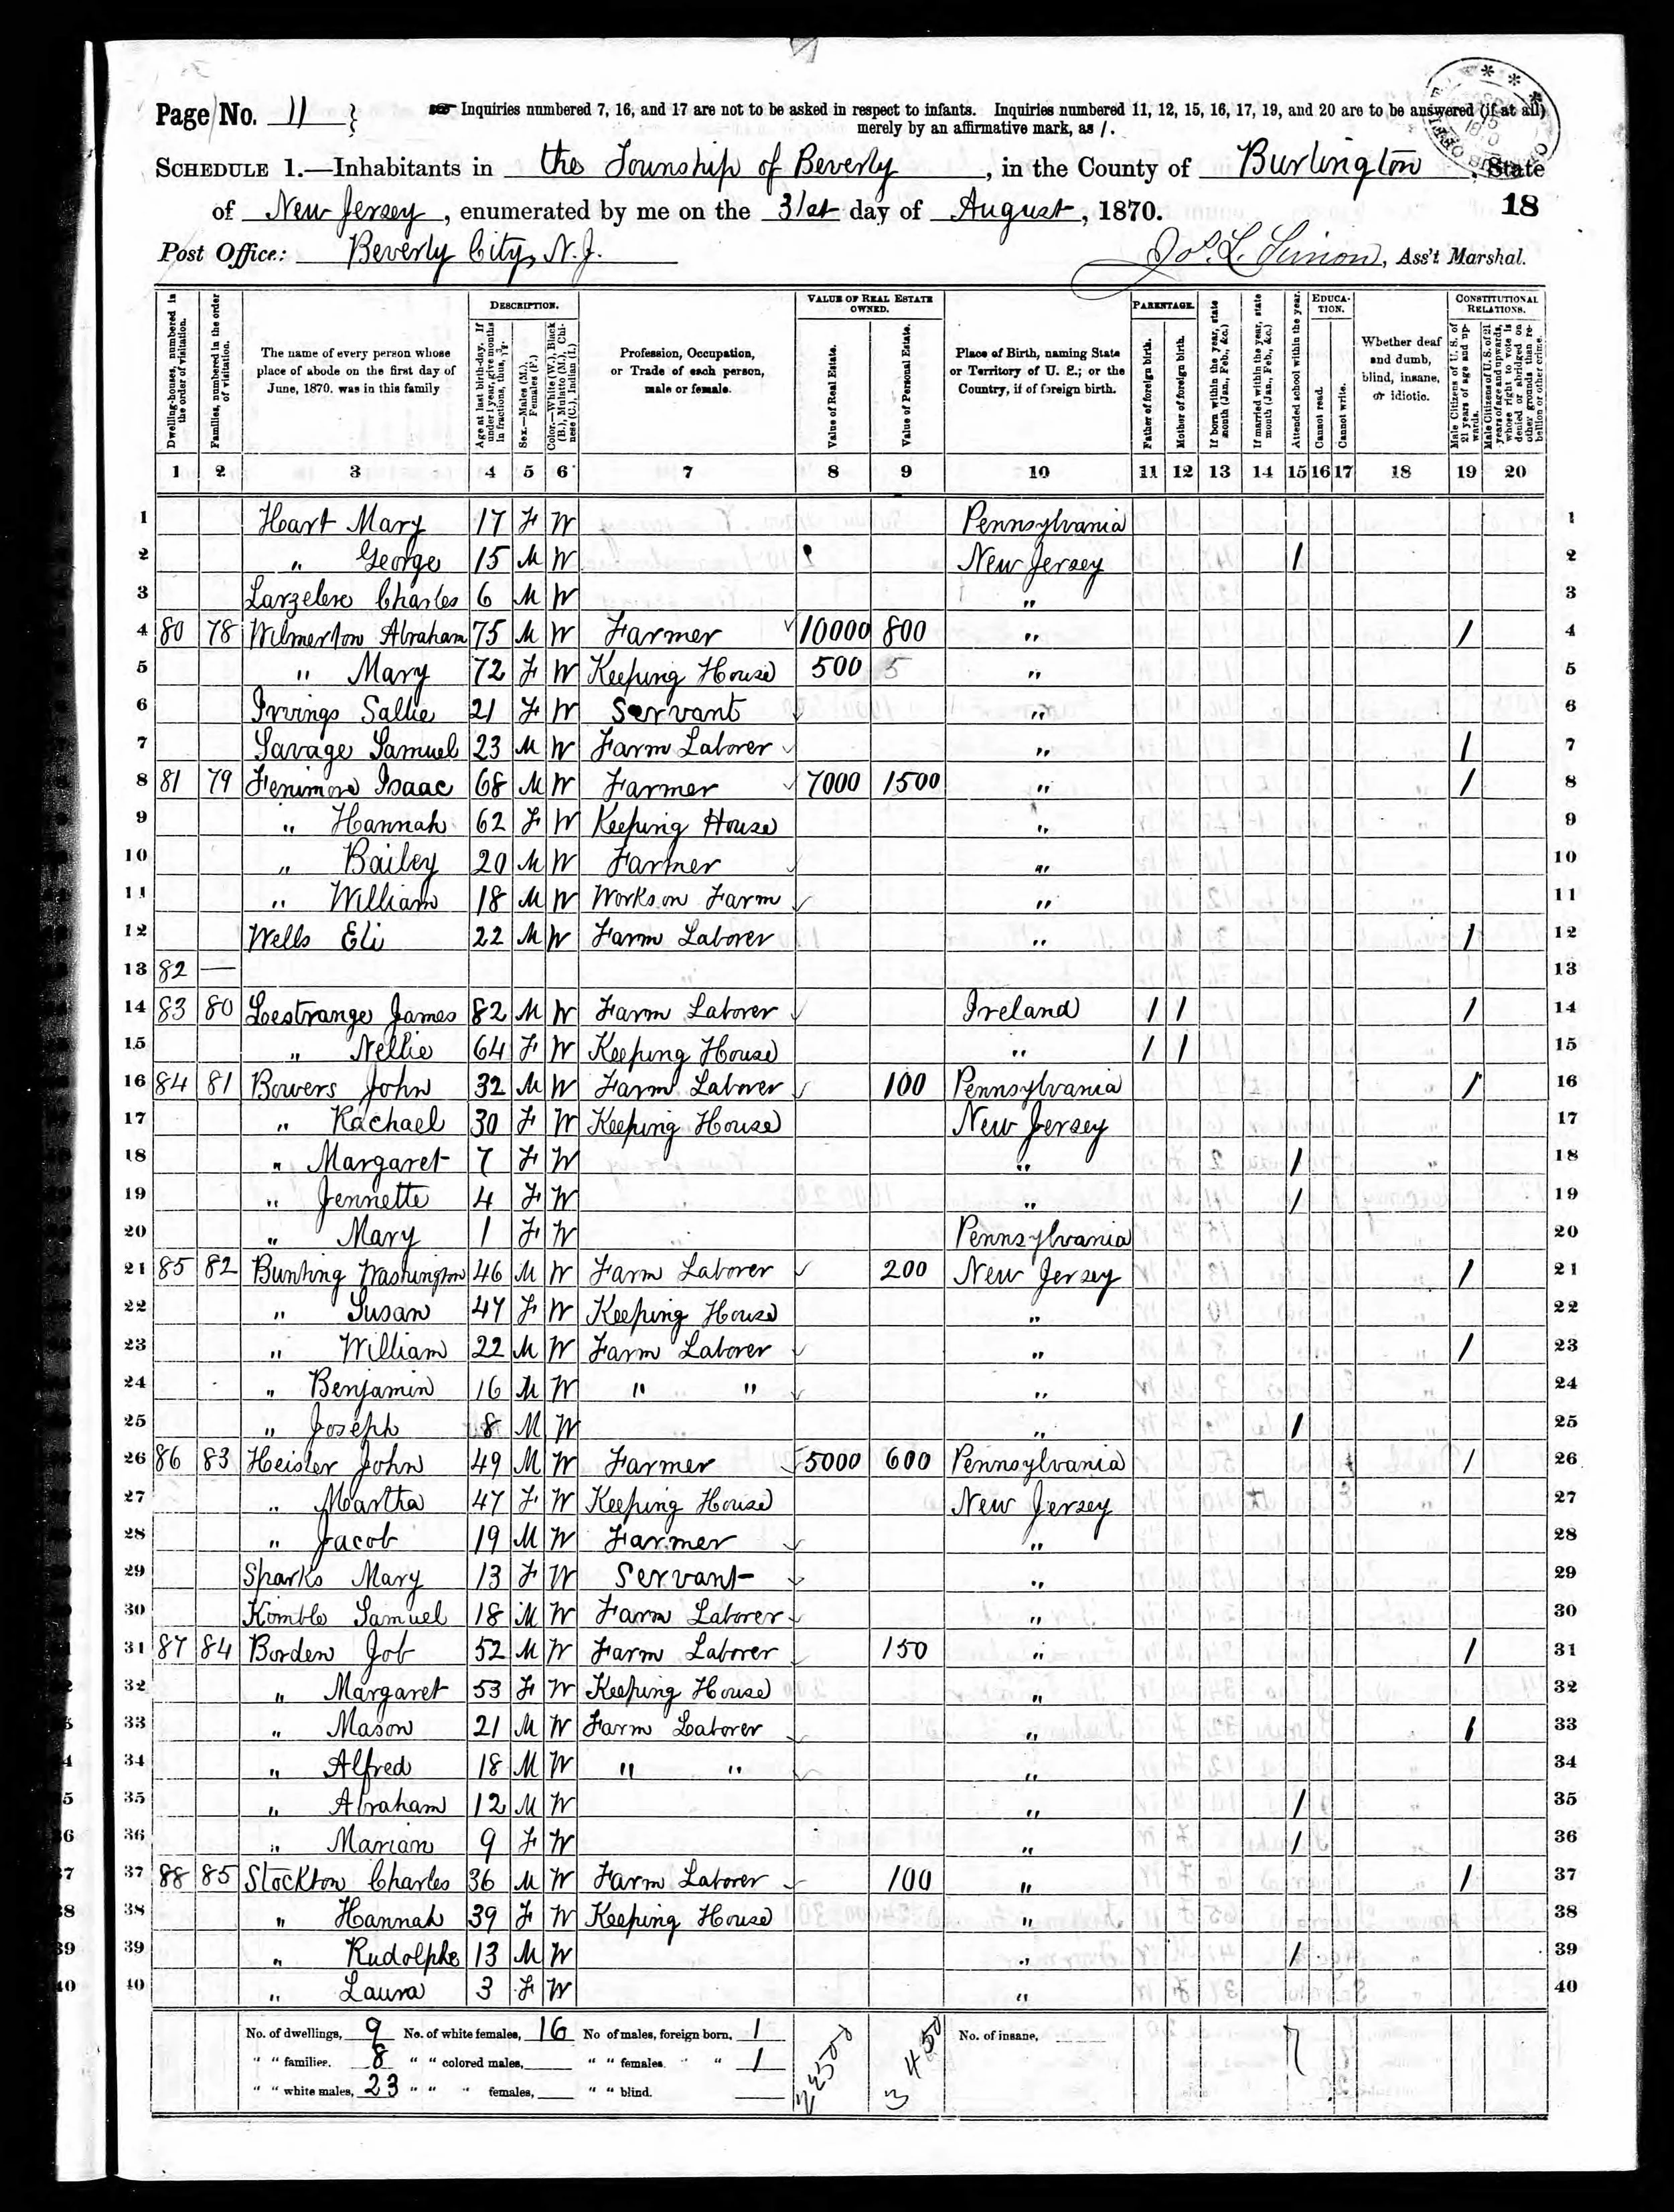 Page No. 11 } Inquiries numbered 7, 16, and 17 are not to be asked in respect to infants. Inquiries numbered 11, 12, 15, 16, 17, 19, and 20 are to be answered (if at all)
merely by an affirmative mark, as /.
SCHEDULE 1.—Inhabitants in the Township of Beverly, in the County of Burlington, State
of New Jersey, enumerated by me on the 31st day of August, 1870. 18
Post Office: Beverly City, N. J. Jos. L. Simon, Ass't Marshal.
Dwelling-houses, numbered in the order of visitation.
Families, numbered in the order of visitation.
The name of every person whose place of abode on the first day of June, 1870, was in this family
DESCRIPTION.
Age at last birth-day. If under 1 year, give months in fractions, thus, 3/12.
Sex.—Males (M.), Females (F.)
Color.—White (W.), Black (B.), Mulatto (M.), Chinese (C.), Indian (I.)
Profession, Occupation, or Trade of each person, male or female.
VALUE OF REAL ESTATE OWNED.
Value of Real Estate.
Value of Personal Estate.
Place of Birth, naming State or Territory of U. S.; or the Country, if of foreign birth.
PARENTAGE.
Father of foreign birth.
Mother of foreign birth.
If born within the year, state month (Jan., Feb., &c.)
If married within the year, state month (Jan., Feb., &c.)
Attended school within the year.
EDUCATION.
Cannot read.
Cannot write.
Whether deaf and dumb, blind, insane, or idiotic.
CONSTITUTIONAL RELATIONS.
Male Citizens of U. S. of 21 years of age and upwards.
Male Citizens of U. S. of 21 years of age and upwards, whose right to vote is denied or abridged on other grounds than rebellion or other crime.
1 2 3 4 5 6 7 8 9 10 11 12 13 14 15 16 17 18 19 20
1 Hart Mary 17 F W Pennsylvania 1
2 " George 15 M W New Jersey / 2
3 Larzelere Charles 6 M W " 3
4 80 78 Wilmerton Abraham 75 M W Farmer 10000 800 " / 4
5 " Mary 72 F W Keeping House 500 5 " 5
6 Irvings Sallie 21 F W Servant " 6
7 Savage Samuel 23 M W Farm Laborer " / 7
8 81 79 Fenimore Isaac 68 M W Farmer 7000 1500 " / 8
9 " Hannah 62 F W Keeping House " 9
10 " Bailey 20 M W Farmer " 10
11 " William 18 M W Works on Farm " 11
12 Wells Eli 22 M W Farm Laborer " / 12
13 82 — 13
14 83 80 Lestrange James 82 M W Farm Laborer Ireland / / / 14
15 " Nellie 64 F W Keeping House " / / 15
16 84 81 Bowers John 32 M W Farm Laborer 100 Pennsylvania / 16
17 " Rachael 30 F W Keeping House New Jersey 17
18 " Margaret 7 F W " / 18
19 " Jennette 4 F W " / 19
20 " Mary 1 F W Pennsylvania 20
21 85 82 Bunting Washington 46 M W Farm Laborer 200 New Jersey / 21
22 " Susan 47 F W Keeping House " 22
23 " William 22 M W Farm Laborer " / 23
24 " Benjamin 16 M W " " " 24
25 " Joseph 8 M W " / 25
26 86 83 Heisler John 49 M W Farmer 5000 600 Pennsylvania / 26
27 " Martha 47 F W Keeping House New Jersey 27
28 " Jacob 19 M W Farmer " 28
29 Sparks Mary 13 F W Servant " 29
30 Komble Samuel 18 M W Farm Laborer " 30
31 87 84 Borden Job 52 M W Farm Laborer 150 " / 31
32 " Margaret 53 F W Keeping House " 32
33 " Mason 21 M W Farm Laborer " / 33
34 " Alfred 18 M W " " " 34
35 " Abraham 12 M W " / 35
36 " Marian 9 F W " / 36
37 88 85 Stockton Charles 36 M W Farm Laborer 100 " / 37
38 " Hannah 39 F W Keeping House " 38
39 " Rudolphe 13 M W " / 39
40 " Laura 3 F W " 40
No. of dwellings, 9 No. of white females, 16 No of males, foreign born, 1 22500 3450 No. of insane, 7
" " families. 8 " " colored males, " " females. " " 1
" " white males, 23 " " " females, " " blind.